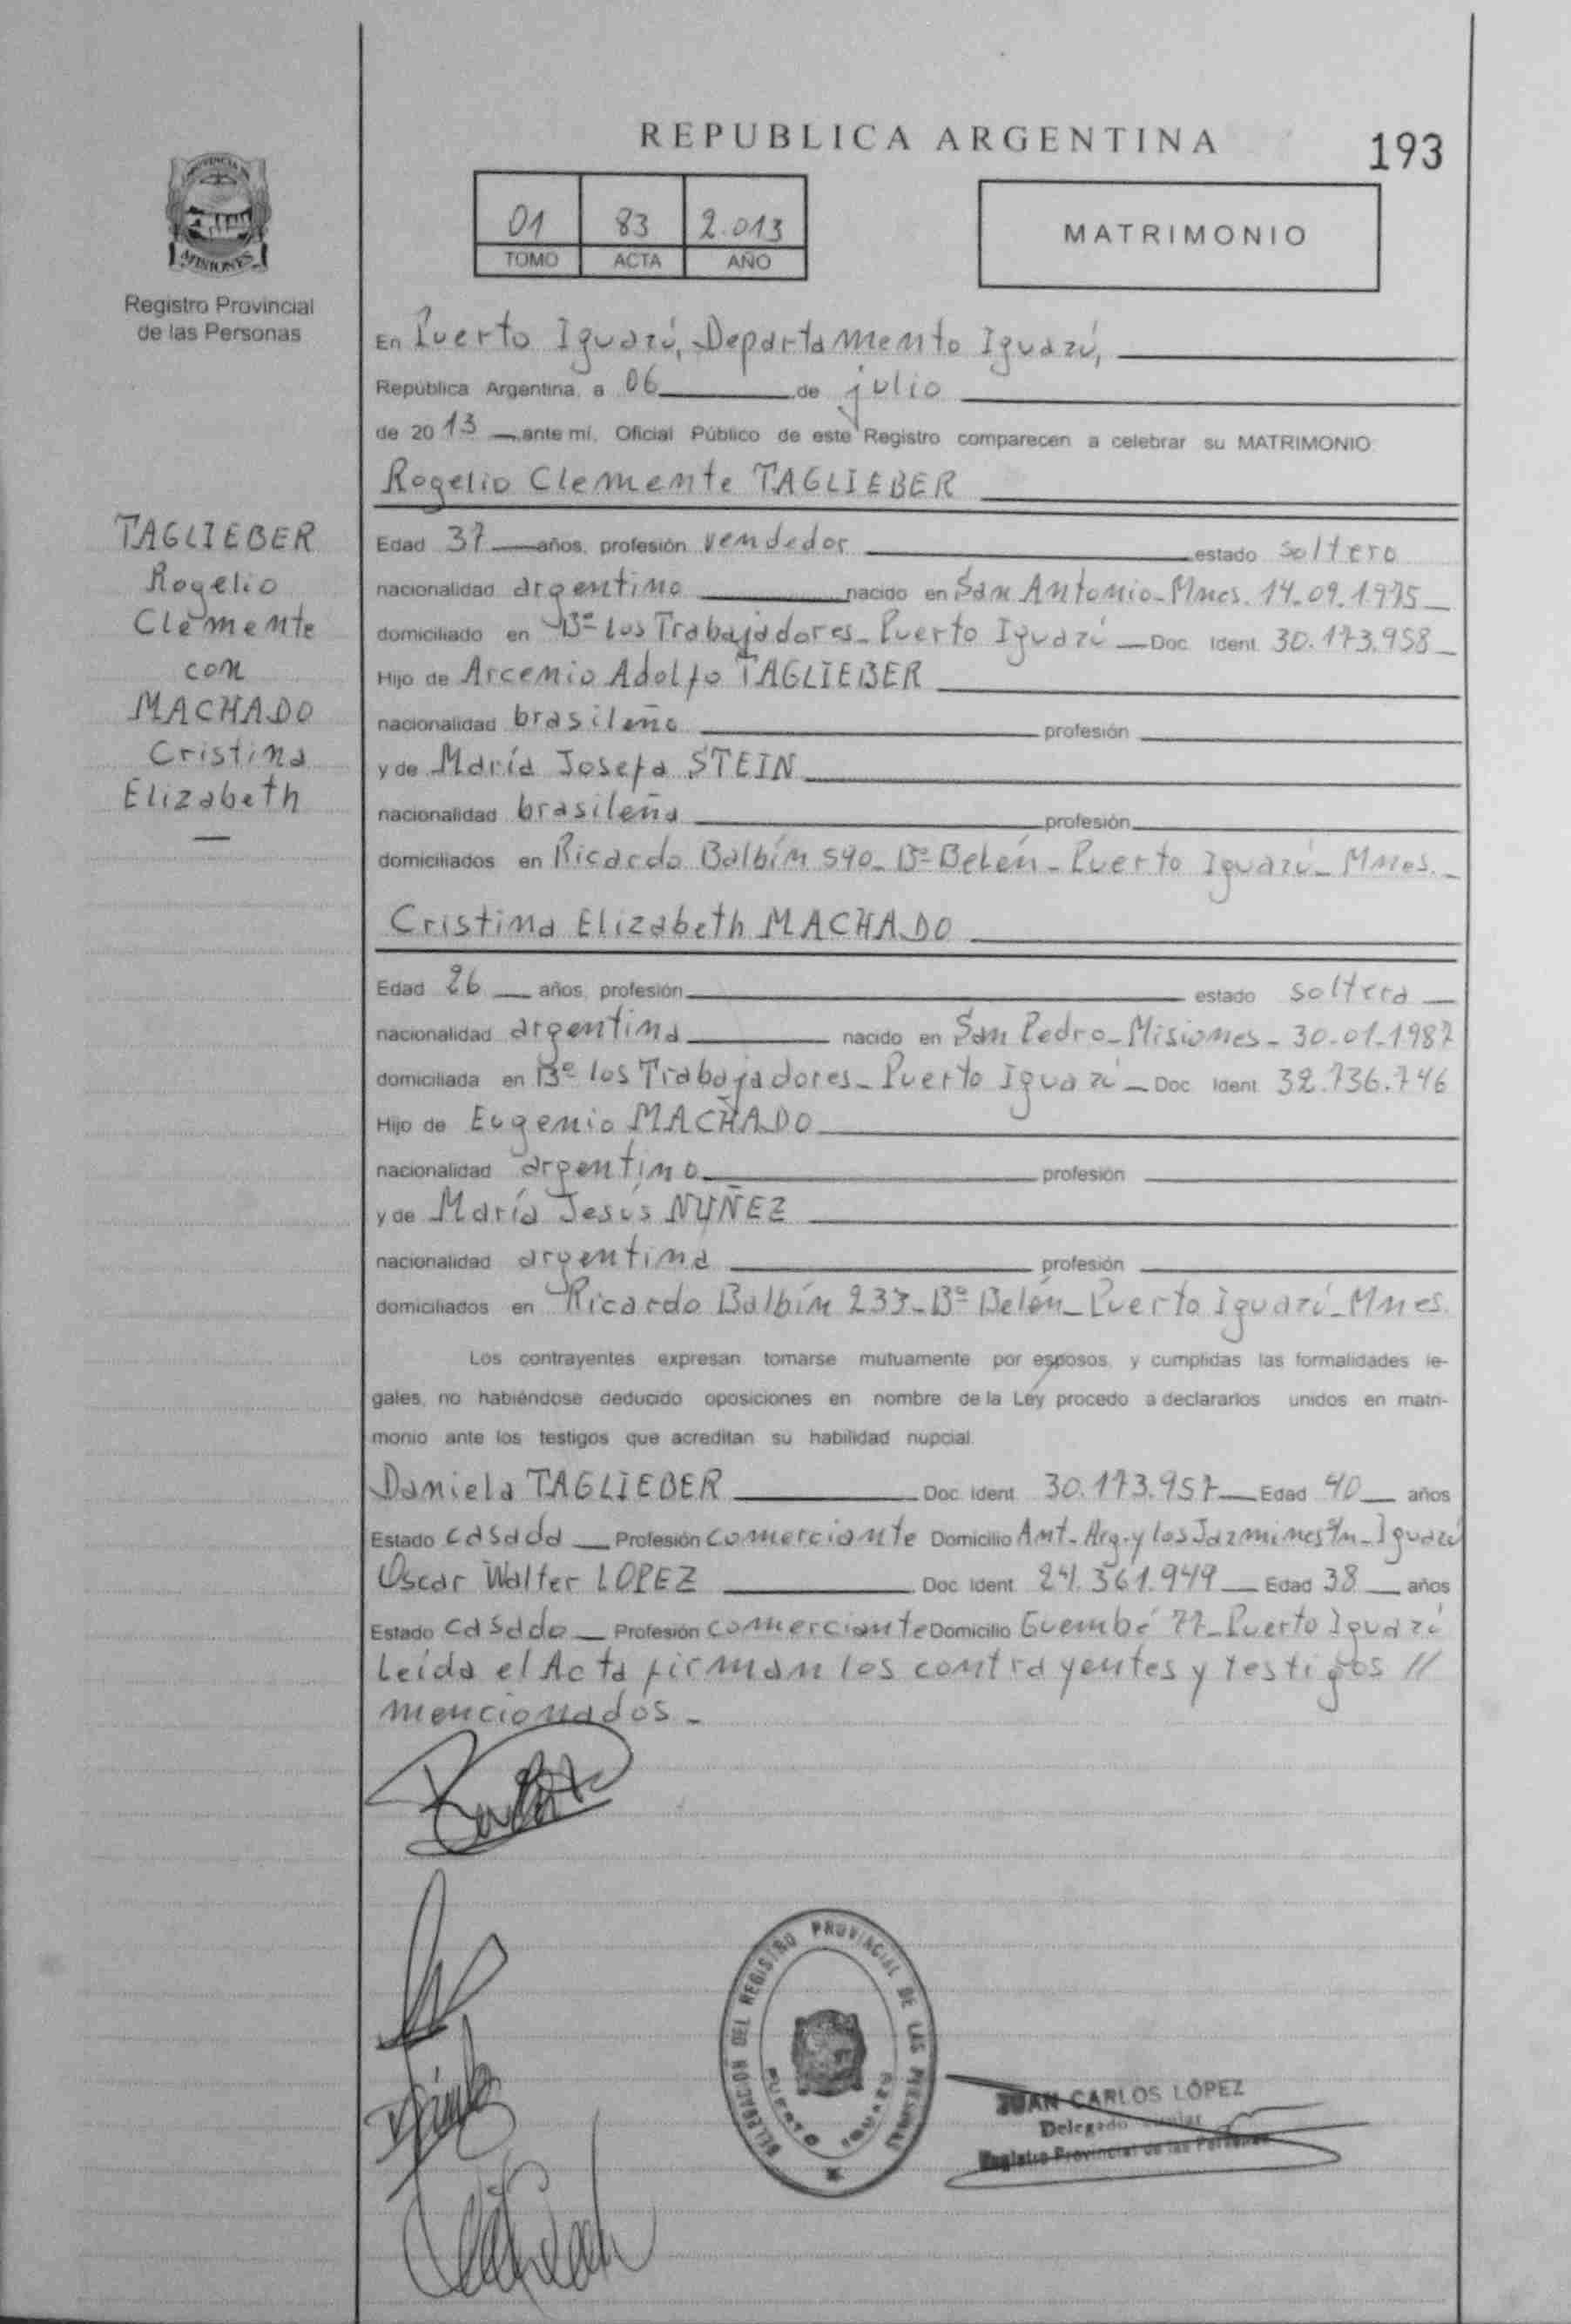 REPUBLICA ARGENTINA
193
PROVINCIA DE
MISIONES
Registro Provincial
de las Personas
01 83 2.013
TOMO ACTA AÑO
MATRIMONIO
En Puerto Iguazú, Departamento Iguazú,
República Argentina, a 06 de julio
de 2013 ante mí, Oficial Público de este Registro comparecen a celebrar su MATRIMONIO
Rogelio Clemente TAGLIEBER
TAGLIEBER
Rogelio
Clemente
con
MACHADO
Cristina
Elizabeth
Edad 37 años, profesión vendedor estado soltero
nacionalidad argentino nacido en San Antonio-Mnes. 14.09.1975
domiciliado en Bº los Trabajadores- Puerto Iguazú Doc. Ident. 30.173.958
Hijo de Arcenio Adolfo TAGLIEBER
nacionalidad brasileño profesión
y de María Josefa STEIN
nacionalidad brasileña profesión
domiciliados en Ricardo Balbín 590- Bº Belén- Puerto Iguazú- Mnes.
Cristina Elizabeth MACHADO
Edad 26 años, profesión estado soltera
nacionalidad argentina nacido en San Pedro-Misiones - 30-01-1987
domiciliada en Bº los Trabajadores- Puerto Iguazú Doc. Ident. 32.736.746
Hijo de Eugenio MACHADO
nacionalidad argentino profesión
y de María Jesús NUÑEZ
nacionalidad argentina profesión
domiciliados en Ricardo Balbín 233-Bº Belén-Puerto Iguazú-Mnes.
Los contrayentes expresan tomarse mutuamente por esposos, y cumplidas las formalidades le-
gales, no habiéndose deducido oposiciones en nombre de la Ley procedo a declararlos unidos en matri-
monio ante los testigos que acreditan su habilidad nupcial.
Daniela TAGLIEBER Doc. Ident. 30.173.957 Edad 40 años
Estado casada Profesión comerciante Domicilio Ant-Arg-y los Jazmines s/n-Iguazú
Oscar Walter LOPEZ Doc. Ident. 24.361.949 Edad 38 años
Estado casado Profesión comerciante Domicilio Guembé 77-Puerto Iguazú
Leída el Acta firman los contrayentes y testigos //
mencionados-
DELEGACIÓN DEL REGISTRO PROVINCIAL DE LAS PERSONAS
PUERTO IGUAZU
JUAN CARLOS LÓPEZ
Delegado Titular
Registro Provincial de las Personas